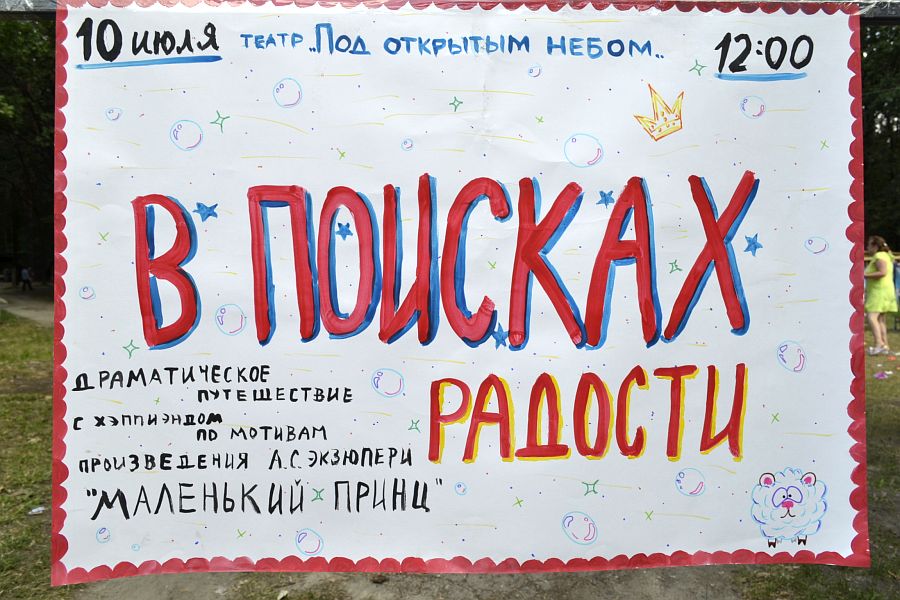 10 июля театр „Под открытым небом„ 12:00
В ПОИСКАХ
РАДОСТИ
ДРАМАТИЧЕСКОЕ
ПУТЕШЕСТВИЕ
С ХЭППИЭНДОМ
ПО МОТИВАМ
ПРОИЗВЕДЕНИЯ А.С.ЭКЗЮПЕРИ
"МАЛЕНЬКИЙ ПРИНЦ"